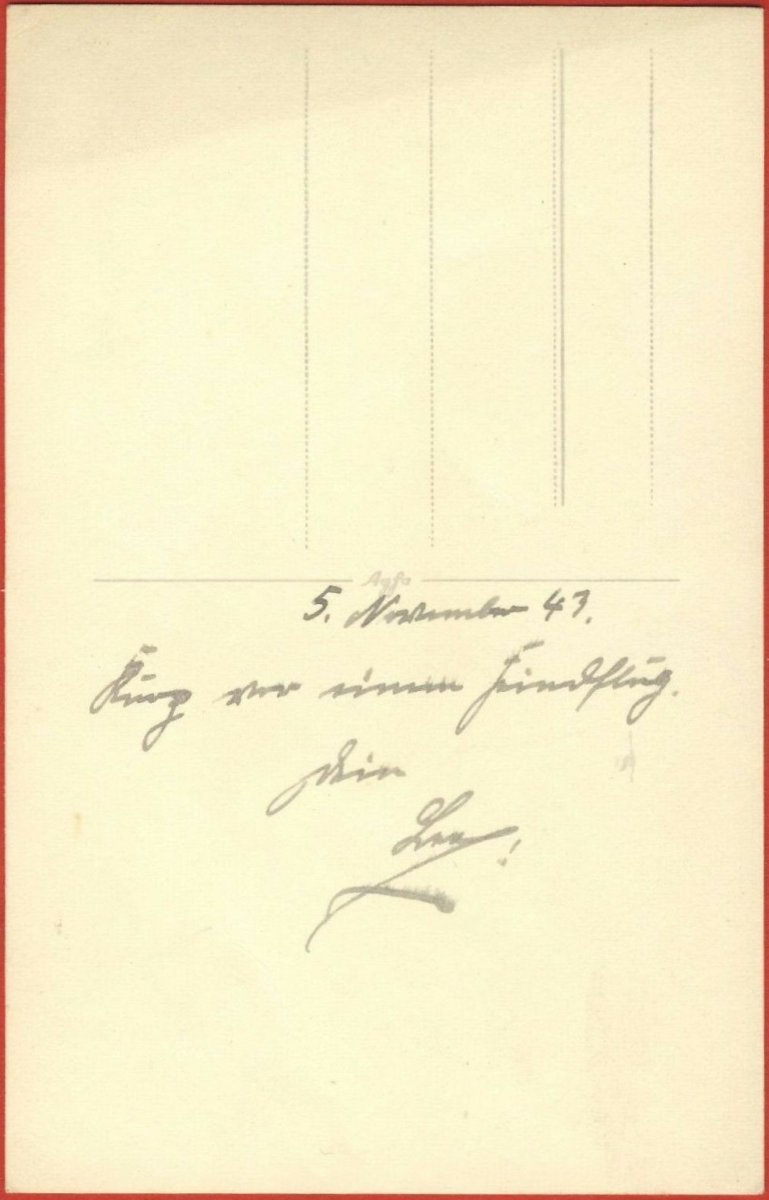 Agfa
5. November 43.
Kurz vor einem Feindflug.
Dein
Leo!